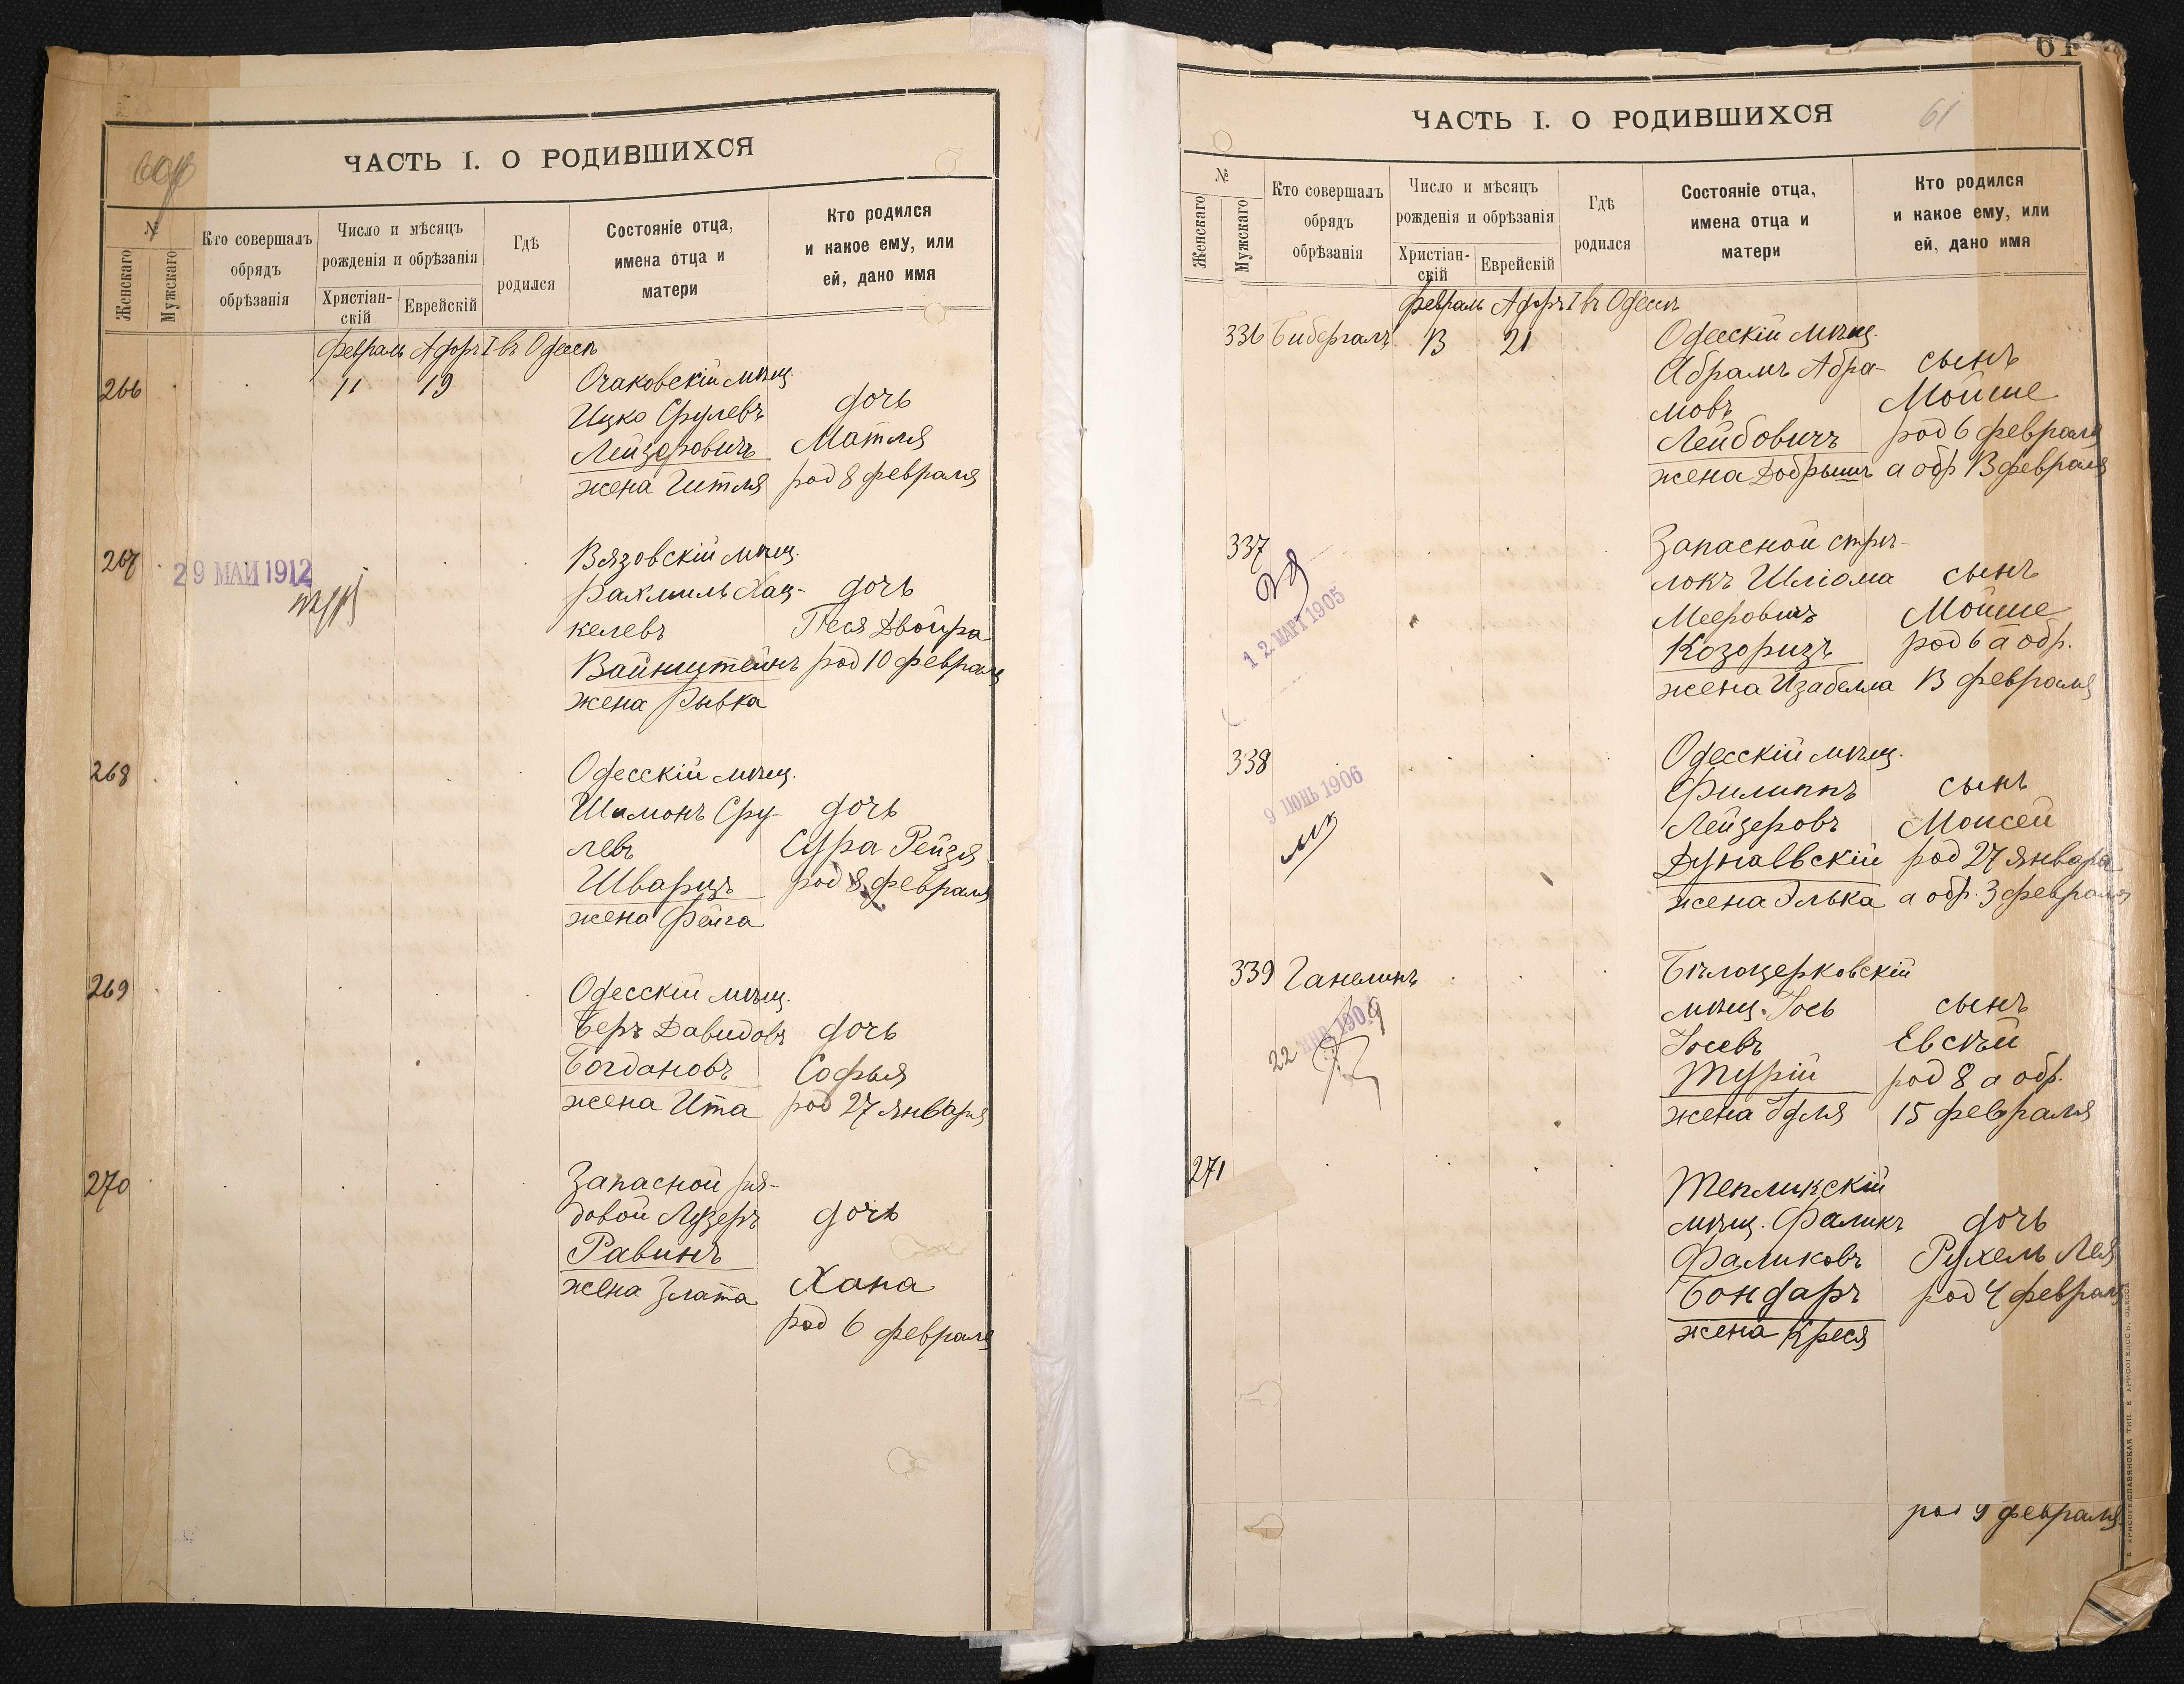 ЧАСТЬ I. О РОДИВШИХСЯ
№
Женскаго
Мужскаго
Кто совершалъ
обрядъ
обрѣзанія
Число и мѣсяцъ
рожденія и обрѣзанія
Христіан-
скій
Еврейскій
Гдѣ
родился
Состояніе отца,
имена отца и
матери
Кто родился
и какое ему, или
ей, дано имя
Февраль Адаръ I въ Одессѣ
266 11 19 Очаковскій мѣщ.
Ицко Срулевъ дочь
Лейзеровичъ Матля
жена Гитля род 8 февраля
267 Вязовскій мѣщ.
29 МАЙ 1912
Рахмиль Хац- дочь
келевъ Песя Двойра
Вайнштейнъ род 10 февраля
жена Рывка
268 Одесскій мѣщ.
Шимонъ Сру- дочь
левъ Сура Рейзя
Шварцъ род 8 февраля
жена Фейга
269 Одесскій мѣщ.
Беръ Давидовъ дочь
Богдановъ Софья
жена Ита род 27 января
270 Запасной ря-
довой Лузеръ дочь
Равинъ
жена Злата Хана
род 6 февраля
61
ЧАСТЬ I. О РОДИВШИХСЯ 61
№
Женскаго
Мужскаго
Кто совершалъ
обрядъ
обрѣзанія
Число и мѣсяцъ
рожденія и обрѣзанія
Христіан-
скій
Еврейскій
Гдѣ
родился
Состояніе отца,
имена отца и
матери
Кто родился
и какое ему, или
ей, дано имя
Февраль Адаръ I въ Одессѣ
336 Бибергалъ 13 21 Одесскій мѣщ.
Абрамъ Абра- сынъ
мовъ Мойше
Лейбовичъ род 6 февраля
жена Добрышъ а обр 13 февраля
337 Запасной стрѣ-
локъ Шліома сынъ
12 МАРТ 1905
Мееровичъ Мойше
Козоризъ род 6 а обр.
жена Изабелла 13 февраля
338 Одесскій мѣщ.
9 ІЮНЬ 1906
Филиппъ сынъ
Лейзеровъ Моисей
Дунаевскій род 27 января
жена Элька а обр. 3 февраля
339 Ганелинъ Бѣлоцерковскій
мѣщ. Іось сынъ
Іосевъ Евсѣй
Турій род 8 а обр.
жена Идля 15 февраля
271 Тепликскій
мѣщ. Фаликъ дочь
Фаликовъ Рухель Лея
Бондарь род 4 февраля
жена Креся
род 9 февраля